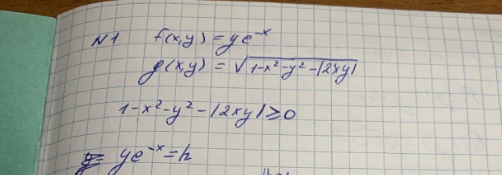 N1 f(x,y) = ye^-x
g(x,y) = √1-x²-y²-|2xy|
1-x²-y²-|2xy|≥0
ye^-x=h